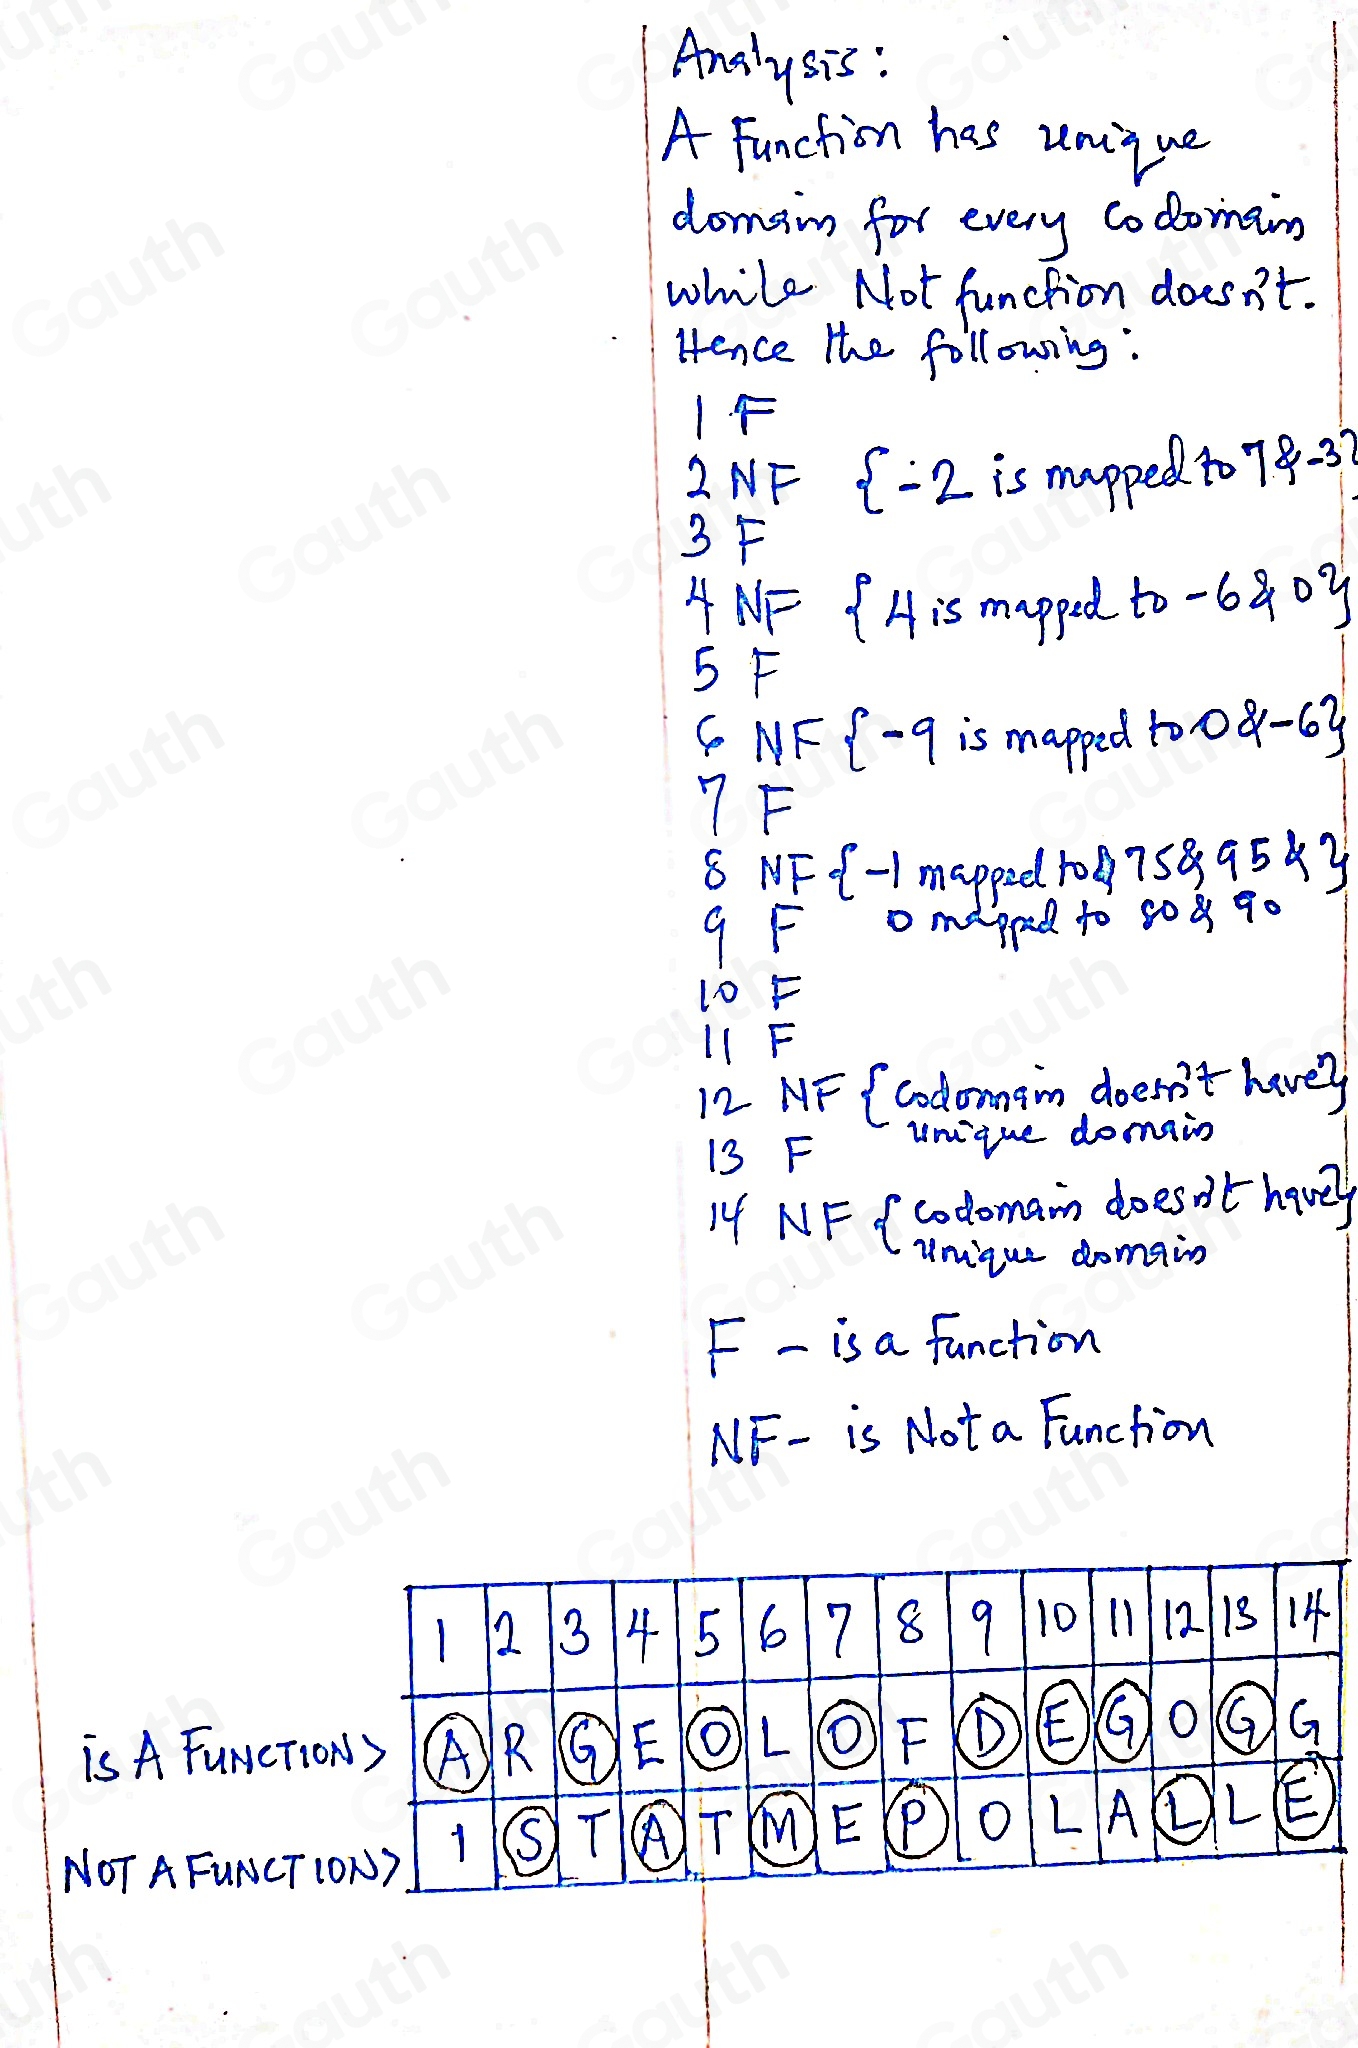 Analysis:
A Function has unique
domain for every codomain
while Not function doesn't.
Hence the following:
1 F
2 NF {-2 is mapped to 7&-3}
3 F
4 NF {4 is mapped to -6&0}
5 F
6 NF {-9 is mapped to 0&-6}
7 F
8 NF {-1 mapped to 75&95&}
9 F 0 mapped to 80&90
10 F
11 F
12 NF {codomain doesn't have}
unique domain
13 F
14 NF {codomain doesn't have}
unique domain
F - is a function
NF- is Not a Function
1 2 3 4 5 6 7 8 9 10 11 12 13 14
is A FUNCTION> A R G E O L O F D E G O G G
NOT A FUNCTION> 1 S T A T M E P O L A L L E
Gauth